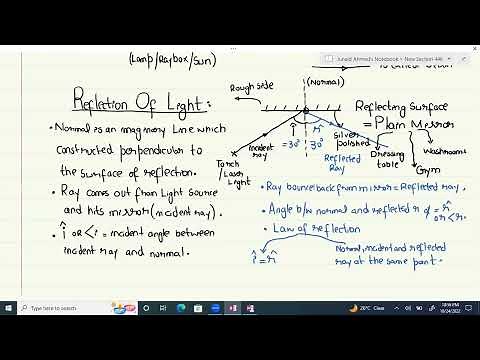 Junaid Ahmed's Notebook > New Section 446
(Lamp/Raybox/Sun)
Reflction Of Light:
• Normal is an imaginary Line which
constructed perpendicular to
the surface of reflection.
• Ray comes out from Light source
and hits mirror (incident ray).
• î or <i = incident angle between
incident ray and normal.
Rough side
(Normal)
Reflecting Surface
= Plain Merror
î
r̂
=30°
30°
incident
ray
Silver
polished
Reflected
Ray
Torch
/Laser
Light
Dressing
table
Gym
Washrooms
• Ray bounce back from mirror = Reflected ray.
• Angle b/w normal and reflected r = r̂
or <r.
• Law of reflection
î = r̂
Normal, incident and reflected
ray at the same point.
Type here to search
26°C Clear
10:56 PM
10/24/2022